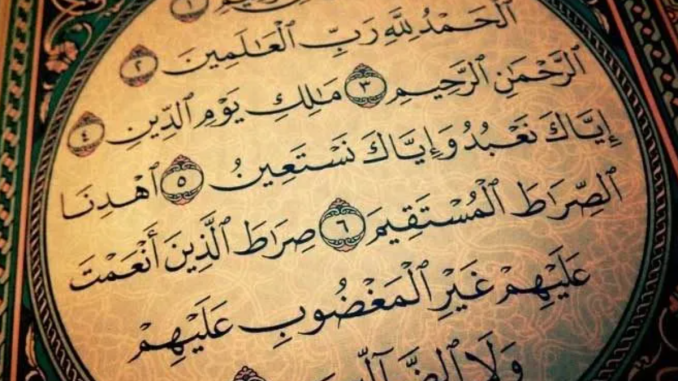 ٱلرَّحِيمِ ١
ٱلْحَمْدُ لِلَّهِ رَبِّ ٱلْعَٰلَمِينَ ٢
ٱلرَّحْمَٰنِ ٱلرَّحِيمِ ٣ مَٰلِكِ يَوْمِ ٱلدِّينِ ٤
إِيَّاكَ نَعْبُدُ وَإِيَّاكَ نَسْتَعِينُ ٥ ٱهْدِنَا
ٱلصِّرَٰطَ ٱلْمُسْتَقِيمَ ٦ صِرَٰطَ ٱلَّذِينَ أَنْعَمْتَ
عَلَيْهِمْ غَيْرِ ٱلْمَغْضُوبِ عَلَيْهِمْ
وَلَا ٱلضَّآلِّينَ